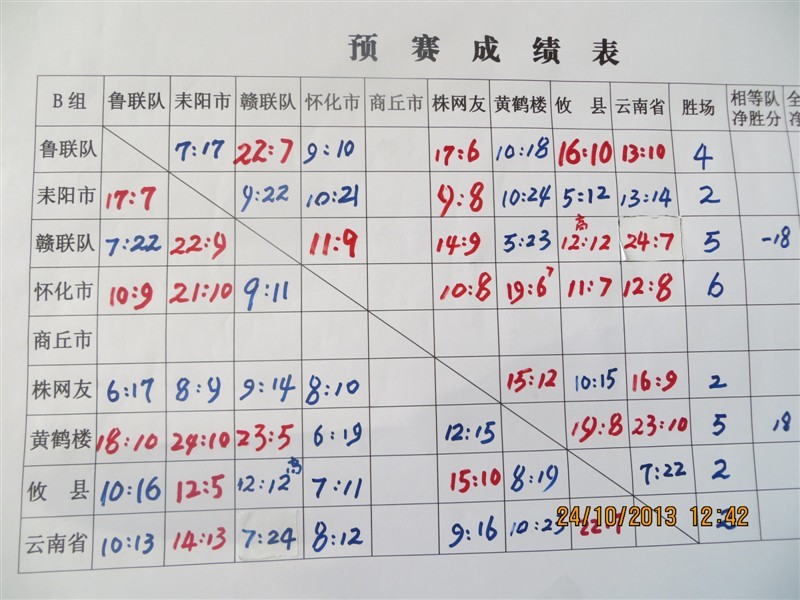 预赛成绩表
B组 鲁联队 耒阳市 赣联队 怀化市 商丘市 株网友 黄鹤楼 攸县 云南省 胜场 相等队净胜分 全 净
鲁联队 7:17 22:7 9:10 17:6 10:18 16:10 13:10 4
耒阳市 17:7 9:22 10:21 9:8 10:24 5:12 13:14 2
赣联队 7:22 22:9 11:9 14:9 5:23 高 12:12 24:7 5 -18
怀化市 10:9 21:10 9:11 10:8 19:6 11:7 12:8 6
商丘市
株网友 6:17 8:9 9:14 8:10 15:12 10:15 16:9 2
黄鹤楼 18:10 24:10 23:5 6:19 12:15 19:8 23:10 5 18
攸县 10:16 12:5 12:12 7:11 15:10 8:19 7:22 2
云南省 10:13 14:13 7:24 8:12 9:16 10:23 22:7 2
24/10/2013 12:42